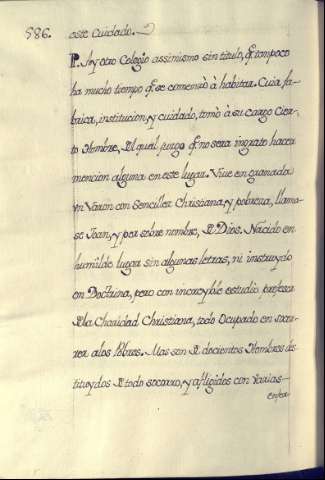 586.
este Cuidado.
P. Ay otro Colegio assimismo sin titulo, q̃ tampoco
ha mucho tiempo q̃ se comenzò à habitar. Cuia fa-
brica, institucion, y cuidado, tomò à su cargo Cier-
to Hombre, del qual juzgo q̃ no sera ingrato hacer
mencion alguna en este lugar. Viue en granada
vn Varon con Sencillez Christiana, y pobreza, llama-
se Joan, y por sobre nombre, de Dios. Nacido en
humilde lugar sin algunas letras, ni instruydo
en Doctrina, pero con increyble estudio professor
de la Charidad Christiana, todo Ocupado en socor-
rer a los Pobres. Mas son de docientos Hombres des-
tituydos de todo socorro, y afligidos con Varias
enfer